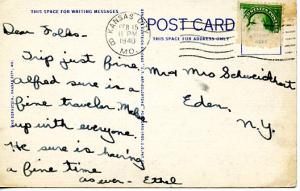 THIS SPACE FOR WRITING MESSAGES
POST CARD
THIS SPACE FOR ADDRESS ONLY
KANSAS CITY
FEB 15
11 PM
1940
MO.
Dear Folks.
Trip just fine
alfred sure is a
fine traveler. Makes
up with everyone.
He sure is having
a fine time
as ever - Ethel
Mr & Mrs Schweickhart
Eden,
N.Y.